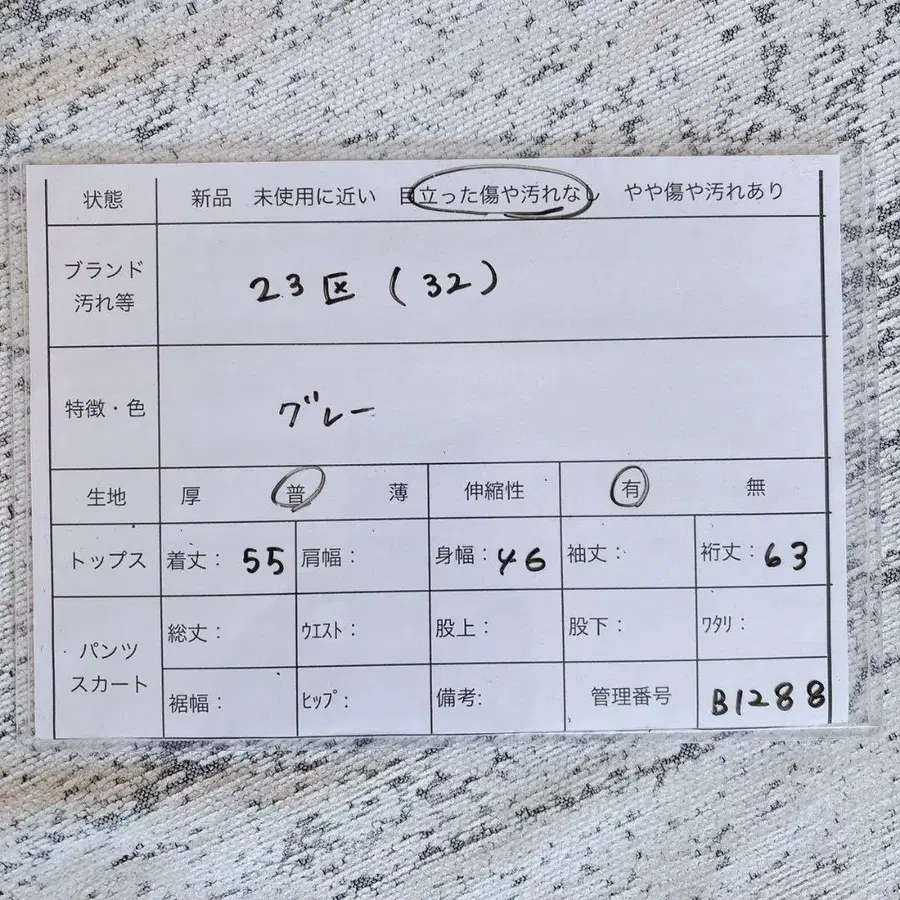 状態 新品 未使用に近い 目立った傷や汚れなし やや傷や汚れあり
ブランド
汚れ等
23区 (32)
特徴・色 グレー
生地 厚 普 薄 伸縮性 有 無
トップス 着丈: 55 肩幅: 身幅: 46 袖丈: 裄丈: 63
パンツ
スカート
総丈: ウエスト: 股上: 股下: ワタリ:
裾幅: ヒップ: 備考: 管理番号 B1288